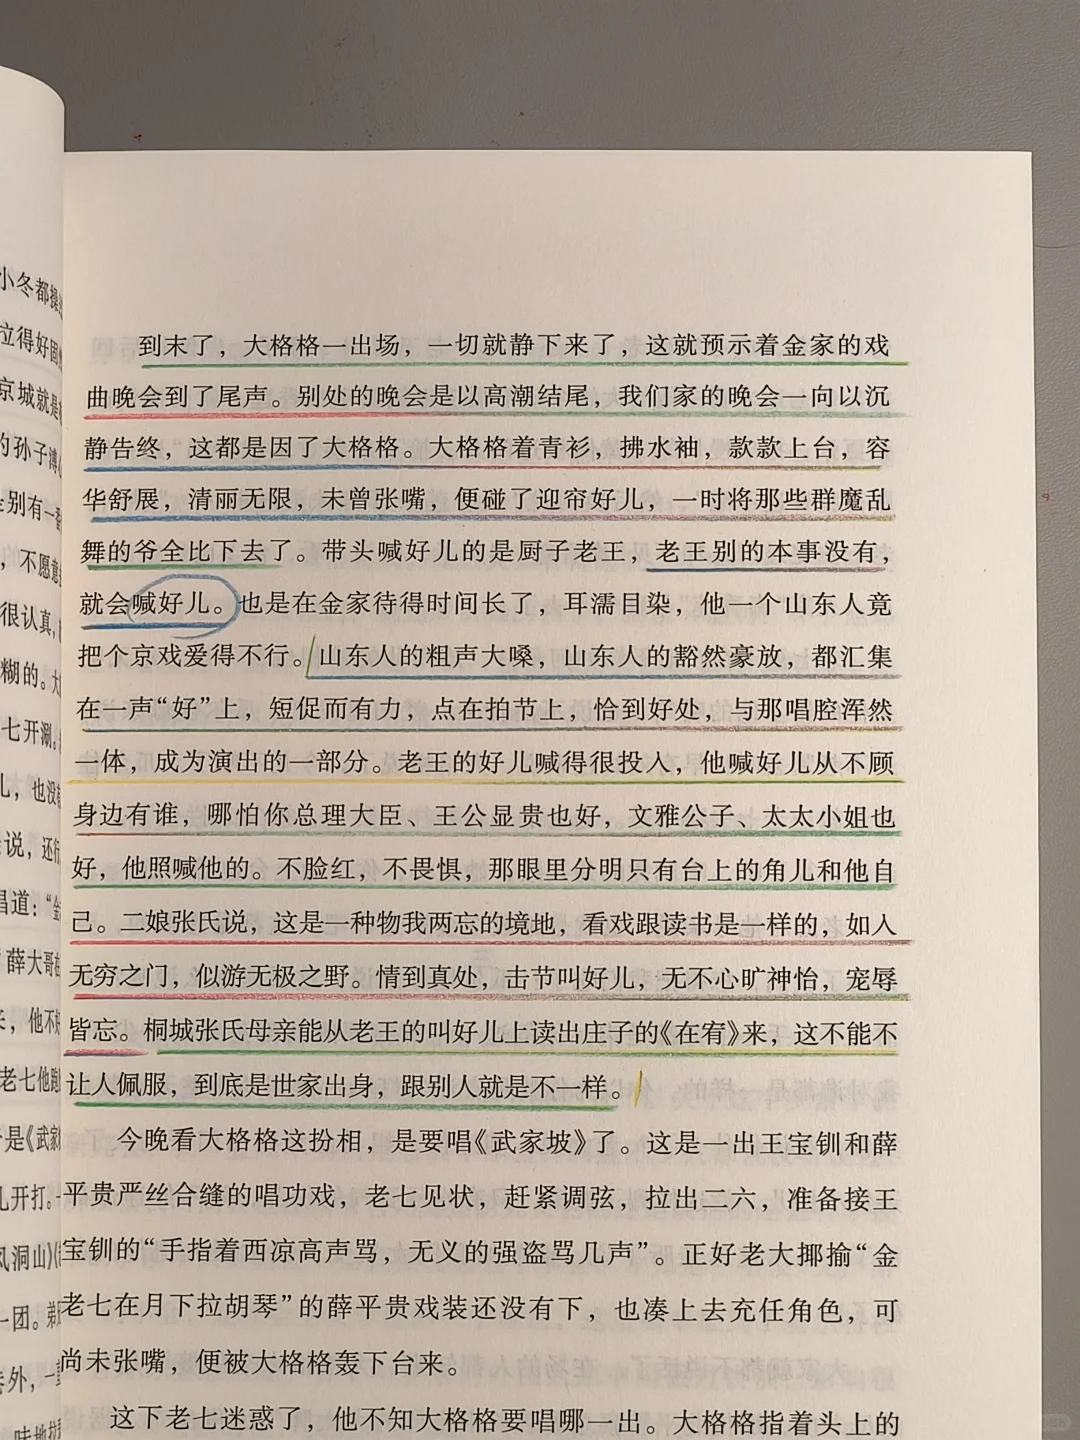 小冬都操
立得好固
京城就是
的孙子溥
是别有一番
，不愿意
很认真，
糊的。大
七开涮。
儿，也没
说，还行
唱道：“金
薛大哥在
来，他不好
老七他跑
于是《武家
几开打。
风洞山》
一团。弟
卷外，一
到末了，大格格一出场，一切就静下来了，这就预示着金家的戏
曲晚会到了尾声。别处的晚会是以高潮结尾，我们家的晚会一向以沉
静告终，这都是因了大格格。大格格着青衫，拂水袖，款款上台，容
华舒展，清丽无限，未曾张嘴，便碰了迎帘好儿，一时将那些群魔乱
舞的爷全比下去了。带头喊好儿的是厨子老王，老王别的本事没有，
就会喊好儿。也是在金家待得时间长了，耳濡目染，他一个山东人竟
把个京戏爱得不行。山东人的粗声大嗓，山东人的豁然豪放，都汇集
在一声“好”上，短促而有力，点在拍节上，恰到好处，与那唱腔浑然
一体，成为演出的一部分。老王的好儿喊得很投入，他喊好儿从不顾
身边有谁，哪怕你总理大臣、王公显贵也好，文雅公子、太太小姐也
好，他照喊他的。不脸红，不畏惧，那眼里分明只有台上的角儿和他自
己。二娘张氏说，这是一种物我两忘的境地，看戏跟读书是一样的，如入
无穷之门，似游无极之野。情到真处，击节叫好儿，无不心旷神怡，宠辱
皆忘。桐城张氏母亲能从老王的叫好儿上读出庄子的《在宥》来，这不能不
让人佩服，到底是世家出身，跟别人就是不一样。
今晚看大格格这扮相，是要唱《武家坡》了。这是一出王宝钏和薛
平贵严丝合缝的唱功戏，老七见状，赶紧调弦，拉出二六，准备接王
宝钏的“手指着西凉高声骂，无义的强盗骂几声”。正好老大揶揄“金
老七在月下拉胡琴”的薛平贵戏装还没有下，也凑上去充任角色，可
尚未张嘴，便被大格格轰下台来。
这下老七迷惑了，他不知大格格要唱哪一出。大格格指着头上的